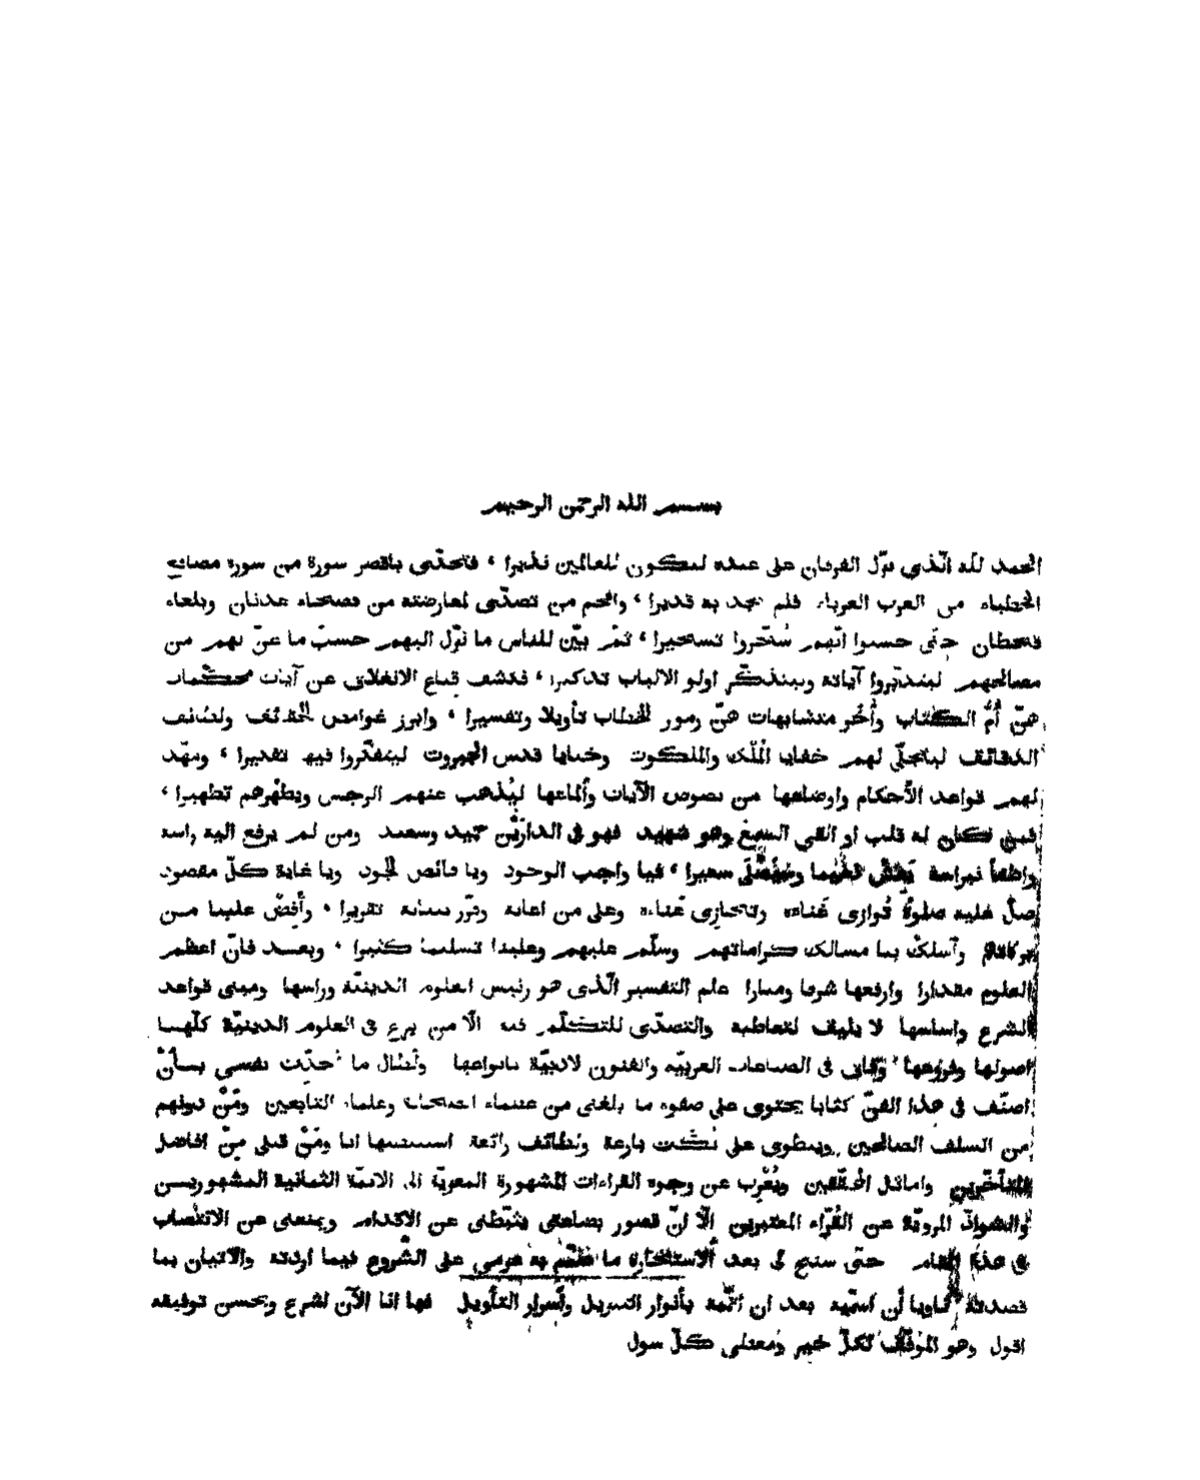 بسم الله الرحمن الرحيم
الحمد لله الّذي نزّل الفرقان على عبده ليكون للعالمين نذيرا ، فتحدّى باقصر سورة من سوره مصاقع
الخطباء من العرب العرباء فلم يجد به قديرا ، وافحم من تصدّى لمعارضته من فصحاء عدنان وبلغاء
قحطان حتّى حسبوا انّهم سُحّروا تسحيرا ، ثمّ بيّن للناس ما نزّل اليهم حسبَ ما عنّ لهم من
مصالحهم ليتدبّروا آياته وليتذكّر اولو الالباب تذكيرا ، فكشف قناع الانغلاق عن آيات محكمات
هنّ أُمّ الكتاب وأُخَر متشابهات هنّ رموز الخطاب تأويلا وتفسيرا ، وابرز غوامض الحقائق ولطائف
الدقائق ليتجلّى لهم خفايا الْمُلْك والملكوت وخبايا قدس الجبروت ليتفكّروا فيها تفكيرا ، ومهّد
لهم قواعد الأحكام واوضاعها من نصوص الآيات وألماعها ليُذهب عنهم الرجس ويطهّرهم تطهيرا ،
فمن كان له قلب او القى السمع وهو شهيد فهو فى الدارَيْن حميد وسعيد ومن لم يرفع اليه راسه
واطفأ نبراسه يعش ذميما وسيصلى سعيرا ، فيا واجب الوجود ويا فائض الجود ويا غاية كلّ مقصود
صلّ عليه صلوةً تُوازى غَناءه وتُجازى عَناءه وعلى من اعانه وقرّر تبيانه تقريرا ، وأَفِضْ علينا من
بركاتهم وٱسلكْ بنا مسالك كراماتهم وسلّم عليهم وعلينا تسليما كثيرا ، وبعد فانّ اعظم
العلوم مقدارا وارفعها شرفا ومنارا علم التفسير الّذى هو رئيس العلوم الدينيّة وراسها ومبنى قواعد
الشرع واساسها لا يليق لتعاطيه والتصدّى للتكلّم فيه الّا من برع فى العلوم الدينيّة كلّها
اصولها وفروعها وفاق فى الصناعات العربيّة والفنون الادبيّة بانواعها ولطال ما أُحدّث نفسى بأنْ
اصنّف فى هذا الفنّ كتابا يحتوى على صفوة ما بلغنى من عظماء الصحابة وعلماء التابعين ومَنْ دونهم
من السلف الصالحين وينطوى على نُكَت بارعة ولطائف رائعة استنبطتها انا ومَنْ قبلى مِنْ افاضل
المتأخّرين واماثل المحقّقين ويُعْرِب عن وجوه القراءات المشهورة المعزيّة الى الائمّة الثمانية المشهورين
والشواذّ المرويّة عن القُرّاء المعتبرين الّا انّ قصور بضاعتى يثبّطنى عن الاقدام ويمنعنى عن الانتصاب
فى هذا المقام حتّى سنح لى بعد الاستخارة ما صمّم به عزمى على الشّروع فيما اردته والاتيان بما
قصدته ناويا أن اسمّيه بعد ان اتمّمه بأنوار التنزيل وأسرار التأويل فها انا الآن اشرع وبحسن توفيقه
اقول وهو الموفّق لكلّ خير ومعطى كلّ سول